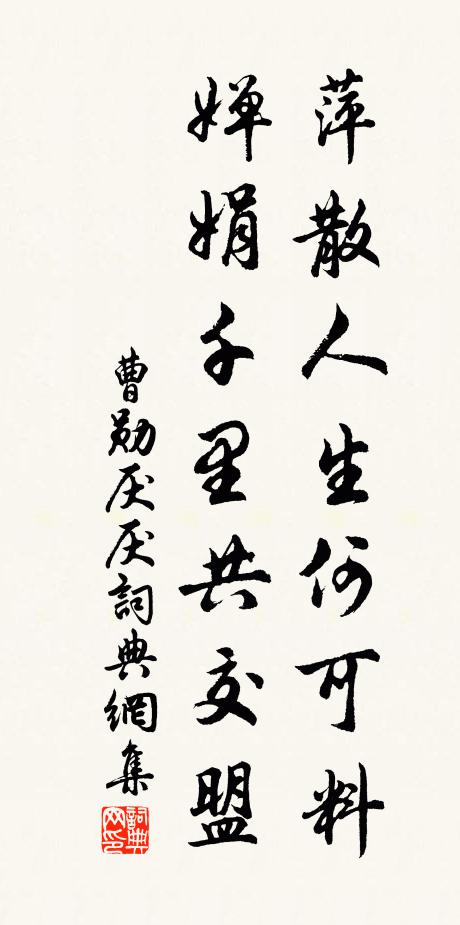 萍散人生何可料
婵娟千里共交盟
曹勋厌厌詞典網集
詞典网印